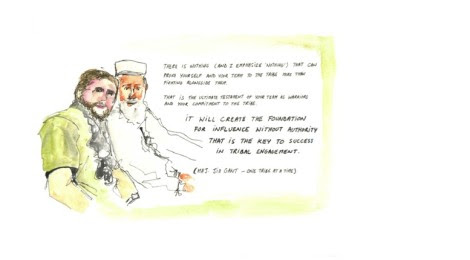 THERE IS NOTHING (AND I EMPHASISE 'NOTHING') THAT CAN
PROVE YOURSELF AND YOUR TEAM TO THE TRIBE MORE THAN
FIGHTING ALONGSIDE THEM.
THAT IS THE ULTIMATE TESTAMENT OF YOUR TEAM AS WARRIORS
AND YOUR COMMITMENT TO THE TRIBE.
IT WILL CREATE THE FOUNDATION
FOR INFLUENCE WITHOUT AUTHORITY
THAT IS THE KEY TO SUCCESS
IN TRIBAL ENGAGEMENT.
(MAJ. JIM GANT - ONE TRIBE AT A TIME)